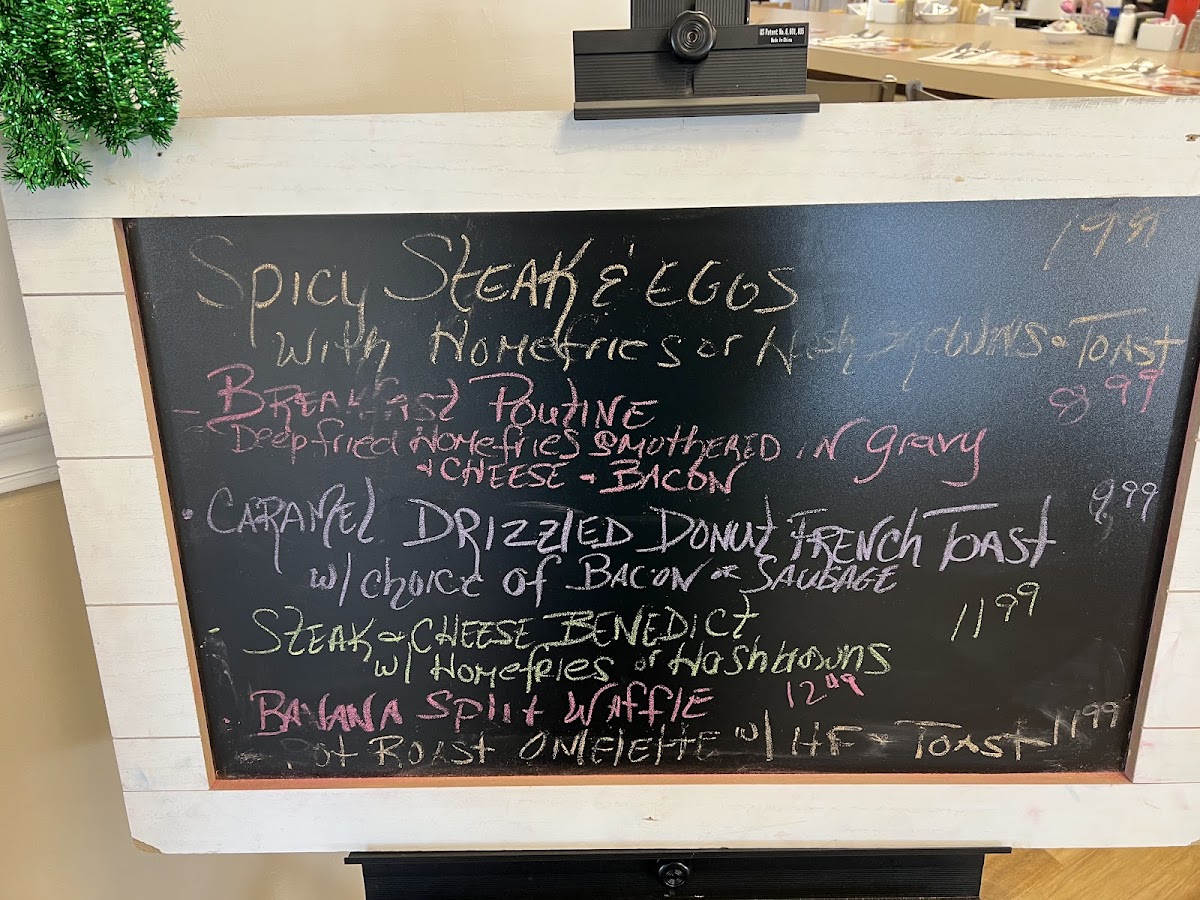 US Patent No.
Made in China
Spicy STEAK & EGGS
With Homefries or Hash Browns & TOAST
- BREAKfast POUTINE 8.99
- Deepfried Homefries SMOTHERED iN gravy
& CHEESE & BACON
• CARAMEL DRIZZLED DONUT FRENCH TOAST 9.99
w/ choice of BACON or SAUSAGE
- STEAK & CHEESE BENEDICT 11.99
w/ Homefries or Hashbrowns
• BANANA Split WAFFLE
- Pot ROAST OMELETTE w/ HF & TOAST 11.99